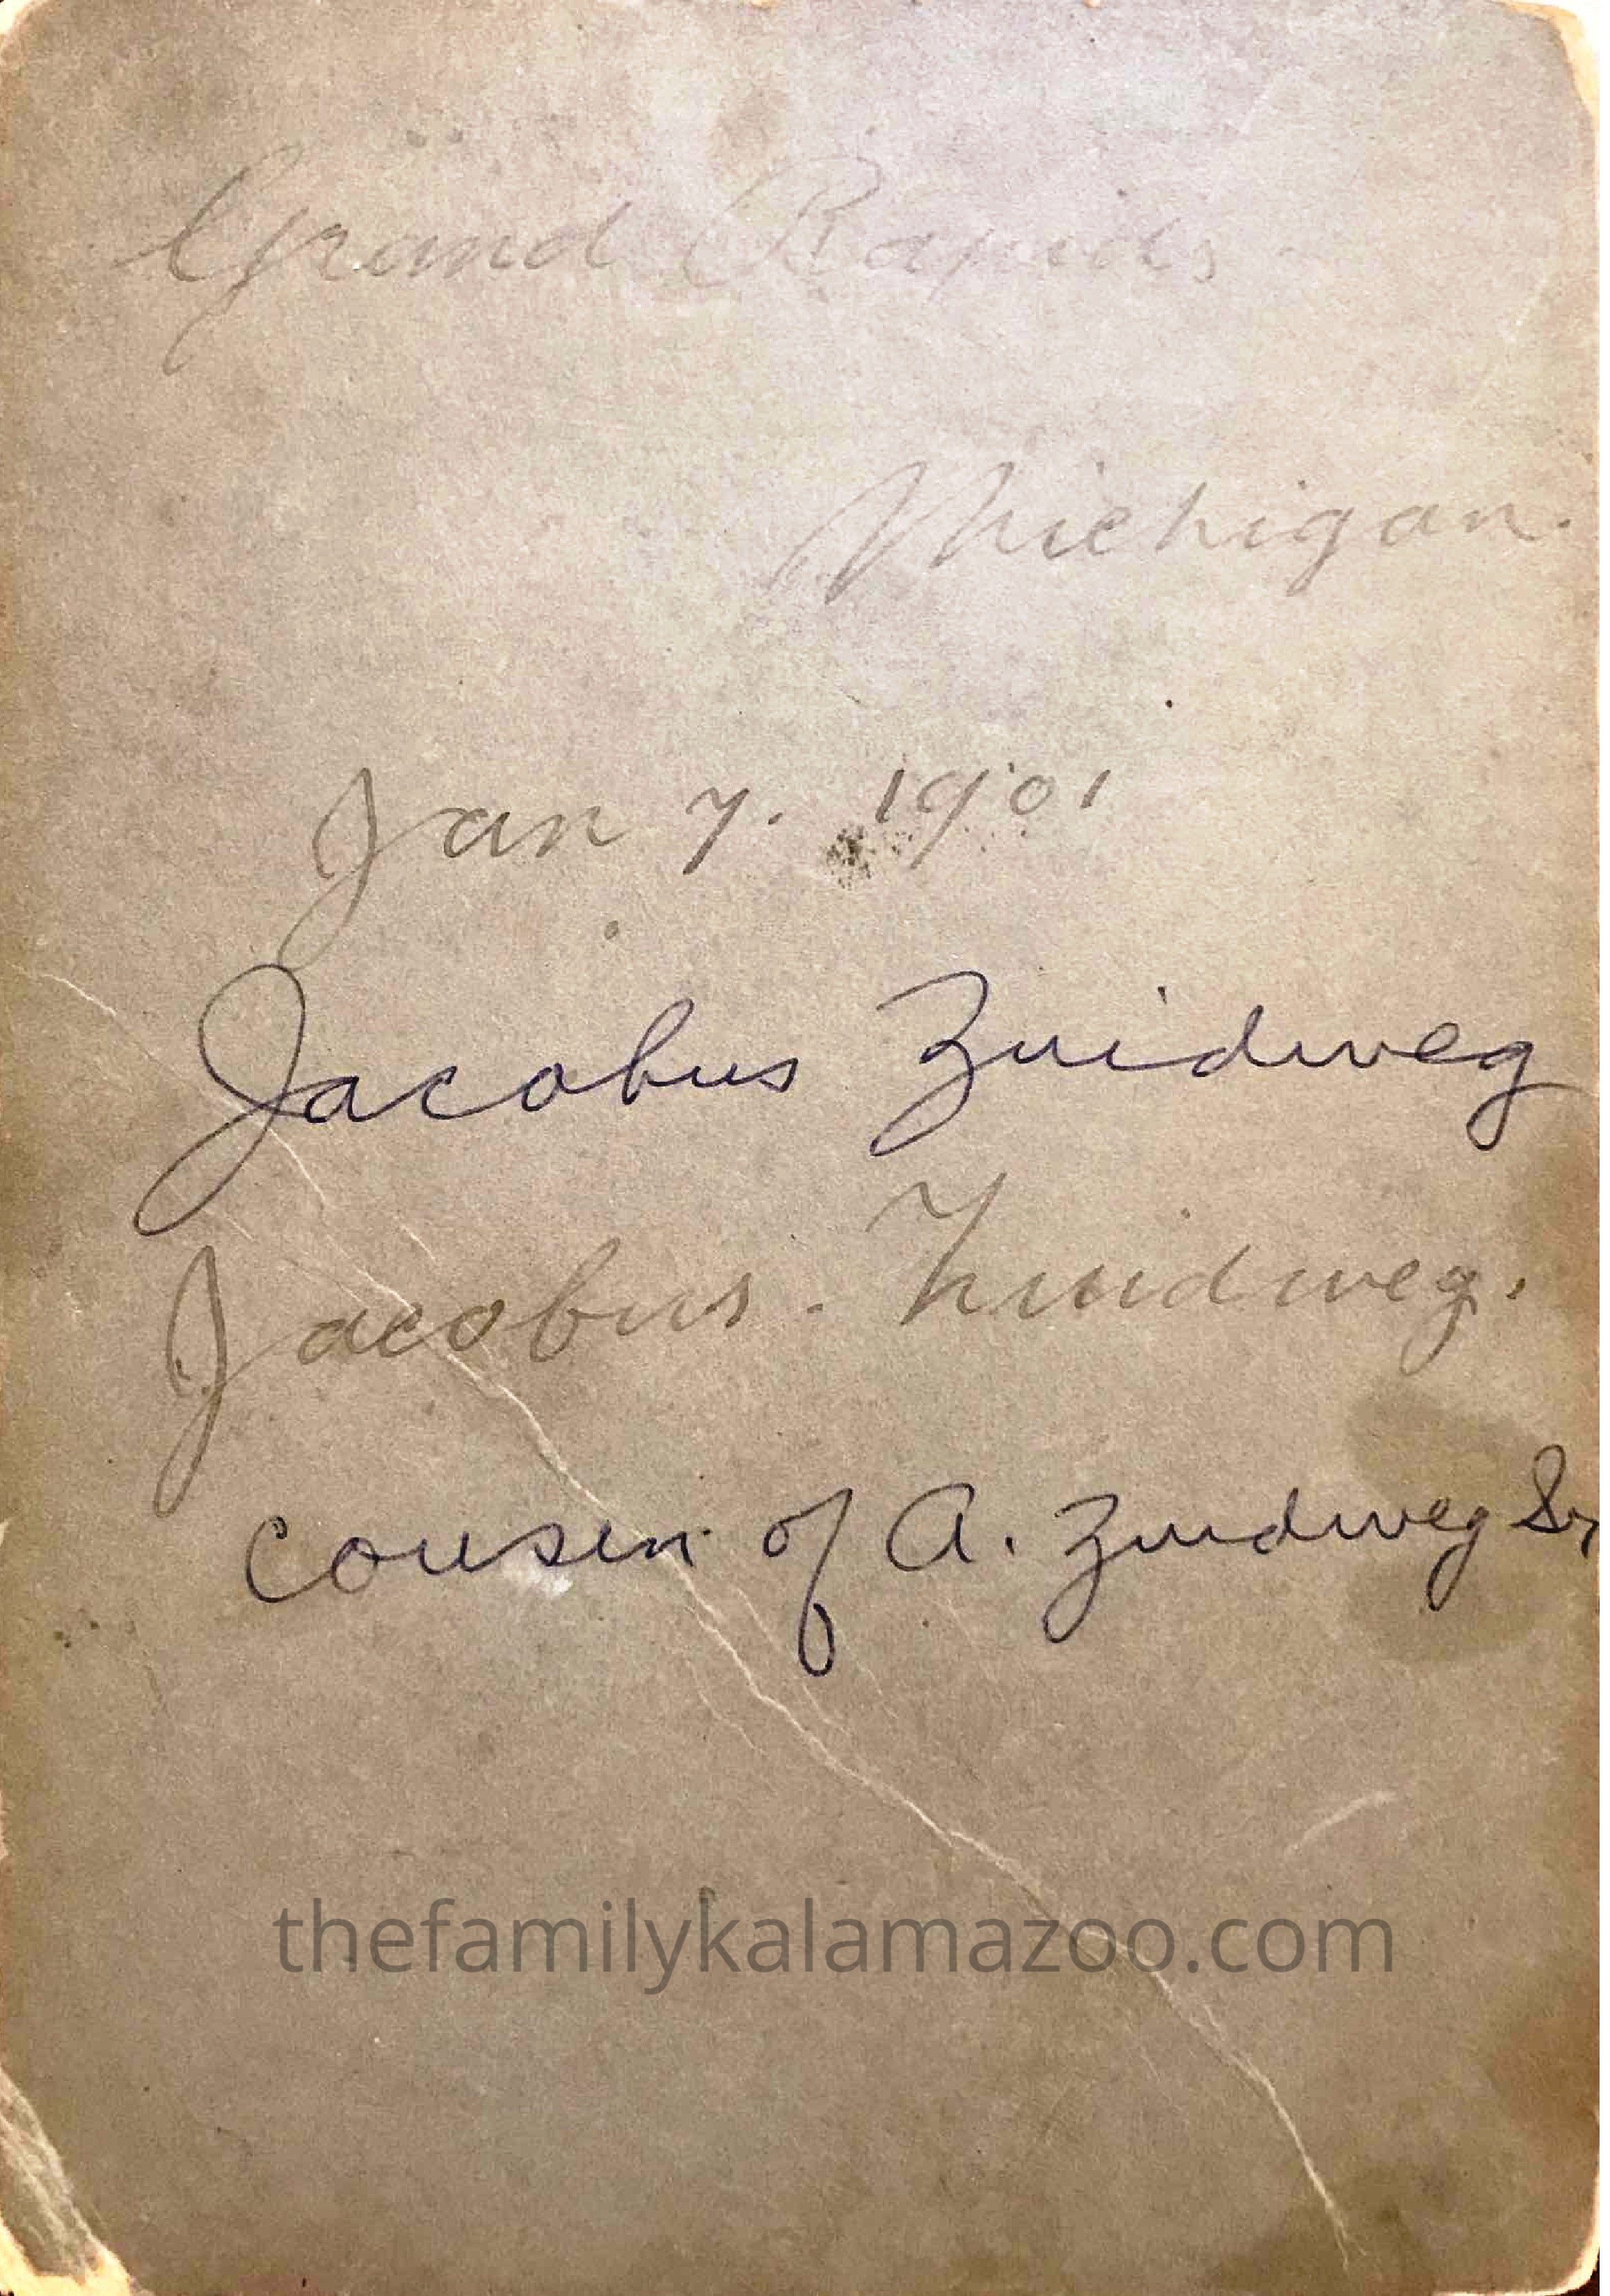 Grand Rapids
Michigan.
Jan 7. 1901
Jacobus Zuidweg
Jacobus. Zuidweg.
cousin of A. Zuidweg Sr
thefamilykalamazoo.com